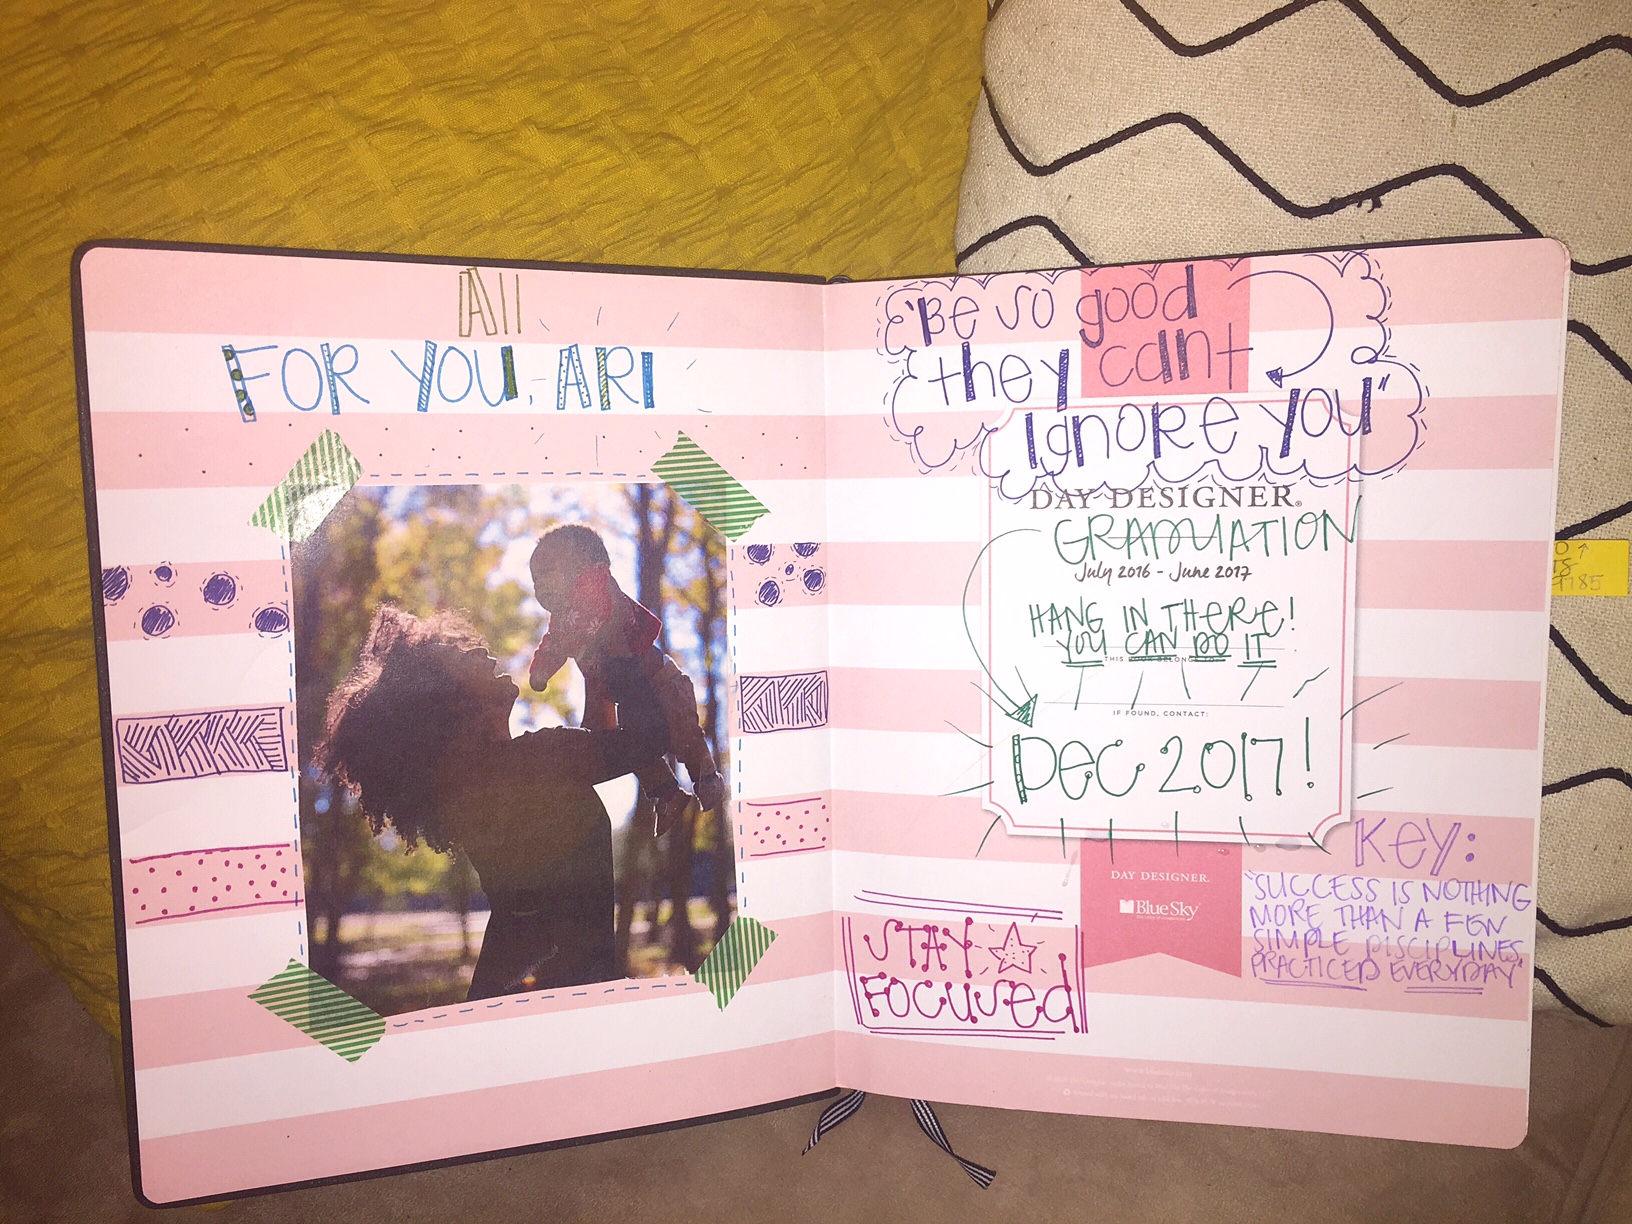 All
FOR YOU, ARI
"Be so good
they can't
ignore you"
DAY DESIGNER®
GRADUATION
July 2016 - June 2017
HANG IN THERE!
YOU CAN DO IT
THIS BOOK BELONGS TO:
IF FOUND, CONTACT:
DEC 2017!
KEY:
"SUCCESS IS NOTHING
MORE THAN A FEW
SIMPLE DISCIPLINES,
PRACTICED EVERYDAY"
DAY DESIGNER.
BlueSky
STAY
FOCUSED